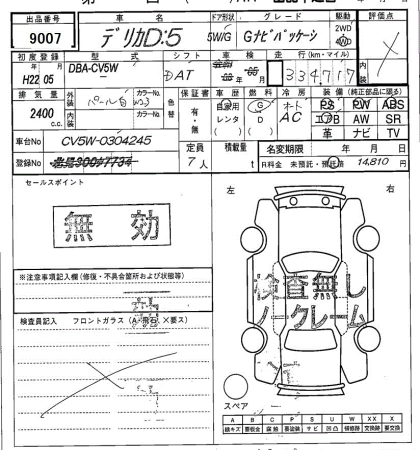 出品番号 車名 ドア形状 グレード 駆動 評価点
9007 デリカD:5 5W/G Gナビパッケージ 2WD 4WD
初度登録 型式 シフト 車検 走行(km・マイル) 内装
H22 05 DBA-CV5W DAT 334,717
排気量 外装 パール白 カラーNo. W23 色替 保証書 車歴 燃料 冷房 装備(純正部品に限る)
2400 c.c. 内装 カラーNo. 有・無 自家用 レンタ G D オート AC PS PW ABS
エアB AW SR
革 ナビ TV
車台No CV5W-0304245 定員 積載量 名変期限 年 月 日
登録No 7人 t R料金 未預託・預託済 14,810円
セールスポイント
無効
左 右
※注意事項記入欄(修復・不具合箇所および状態等)
検査員記入 フロントガラス(A・飛石・X要ス)
検査無し
ノークレーム
スペア
A B C P S U W X XX X
線キズ 要板金 腐蝕 要塗装 サビ 凹凸 補修跡 交換跡 要交換